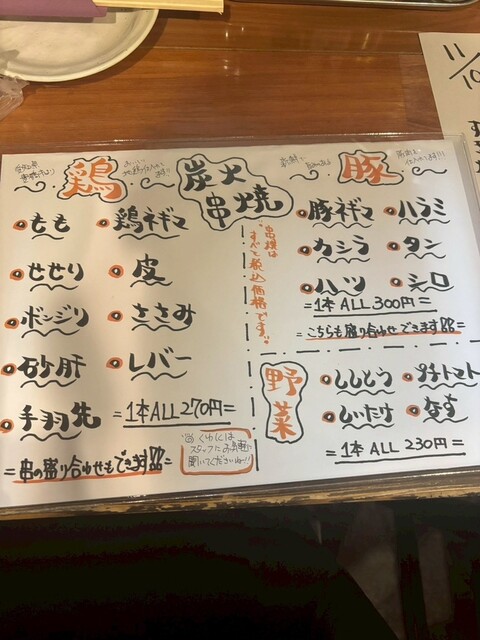 鶏
もも
鶏ネギマ
せせり
皮
ボンジリ
ささみ
砂肝
レバー
手羽先
=1本ALL270円=
=串の盛り合わせもできます!!=
スタッフに
聞いてくださいね～!!
炭火
串焼
串焼は
すべて税込価格です。
豚
豚ネギマ
ハラミ
カシラ
タン
ハツ
シロ
=1本ALL300円=
=こちらも盛り合わせできます!!=
野菜
ししとう
プチトマト
しいたけ
なす
=1本ALL 230円=
11/10